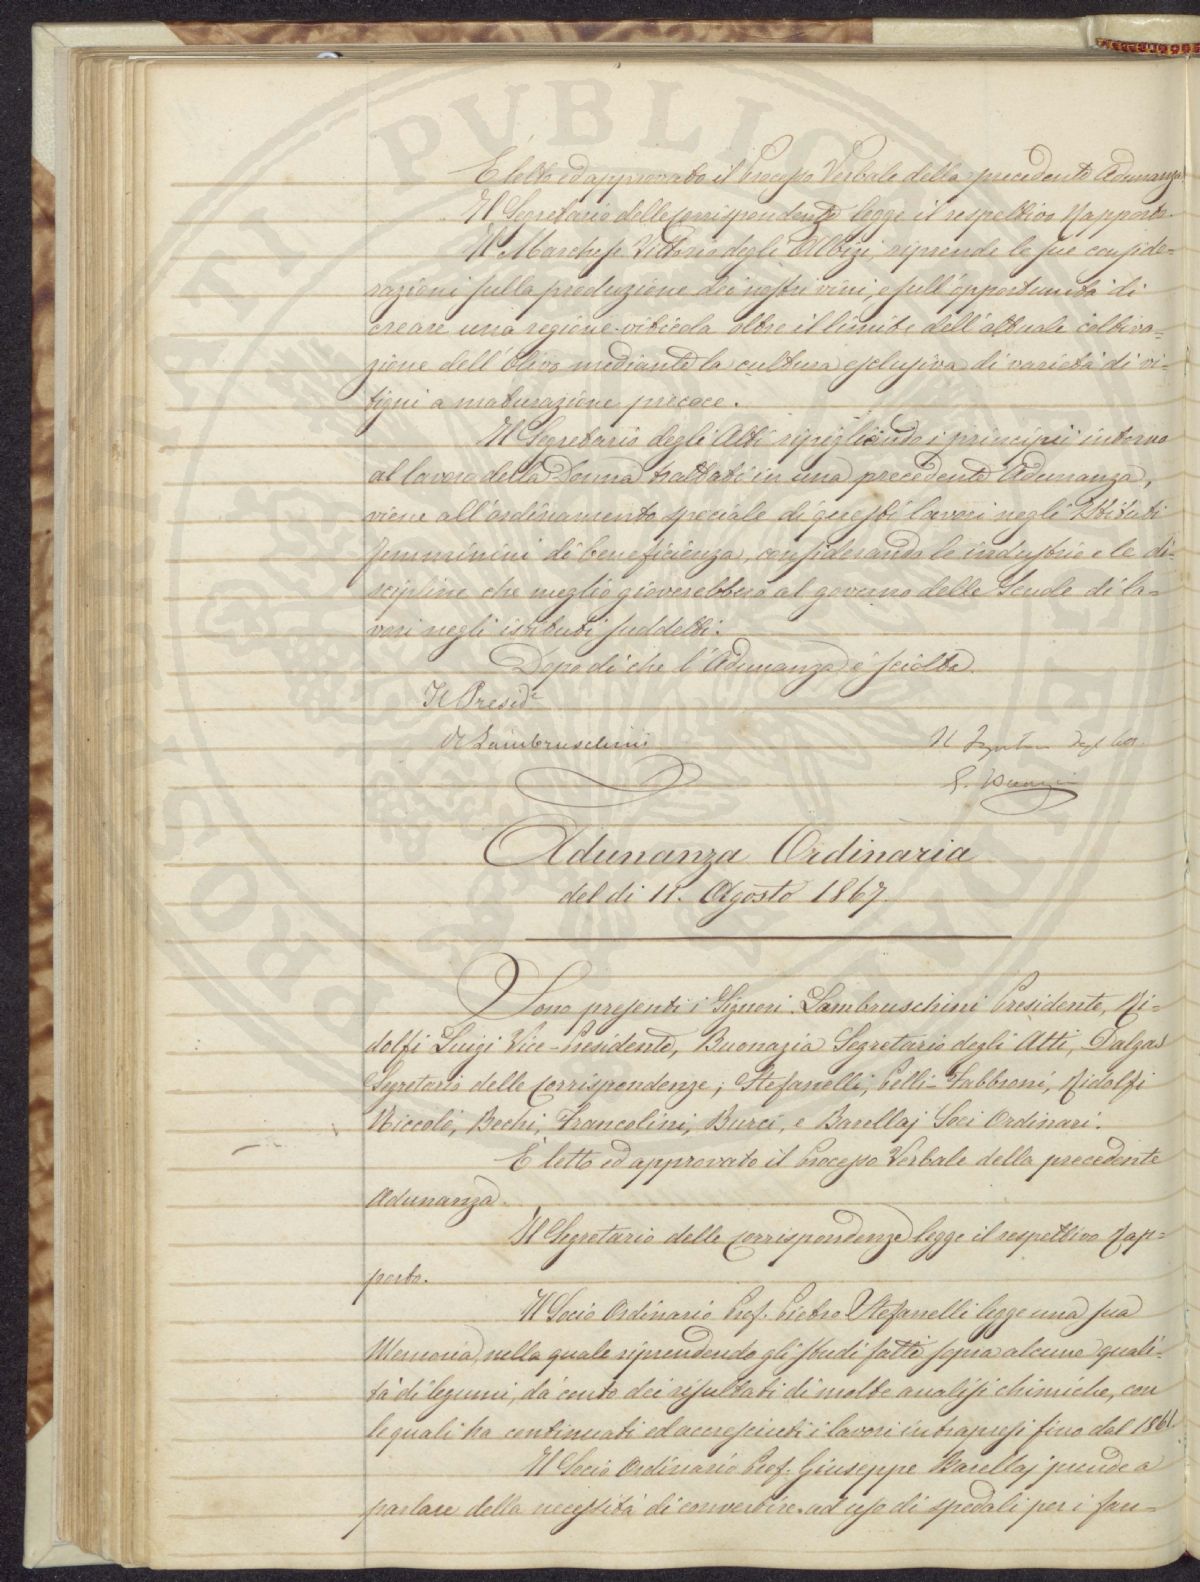 È letto ed approvato il Processo Verbale della precedente Adunanza.
Il Segretario delle Corrispondenze legge il respettivo Rapporto.
Il Marchese Vittorio degli Albizi, riprende le sue conside-
razioni sulla produzione dei nostri vini, e sull'opportunità di
creare una regione viticola oltre il limite dell'attuale coltiva-
zione dell'Olivo mediante la cultura esclusiva di varietà di vi-
tigni a maturazione precoce.
Il Segretario degli Atti ripigliando i principii intorno
al lavoro della Donna trattati in una precedente Adunanza,
viene all'ordinamento speciale di questi lavori negli Istituti
femminini di beneficienza, considerando le industrie e le di-
scipline che meglio gioverebbero al governo delle Scuole di la-
vori negli istituti suddetti.
Dopo di che l'Adunanza è sciolta.
Il Presid.e
R Lambruschini
Il Segretario degli Atti
Adunanza Ordinaria
del dì 11. Agosto 1867.
Sono presenti i Signori Lambruschini Presidente, Ri-
dolfi Luigi Vice-Presidente, Buonazia Segretario degli Atti, Dalgas
Segretario delle Corrispondenze; Stefanelli, Pelli-Fabbroni, Ridolfi
Niccolò, Bechi, Francolini, Burci, e Barellaj Soci Ordinari.
È letto ed approvato il Processo Verbale della precedente
Adunanza.
Il Segretario delle Corrispondenze legge il respettivo Rap=
porto.
Il Socio Ordinario Prof. Pietro Stefanelli legge una sua
Memoria, nella quale riprendendo gli studi fatti sopra alcune quali-
tà di legumi, dà conto dei risultati di molte analisi chimiche, con
le quali ha continuati ed accresciuti i lavori intrapresi fino dal 1861.
Il Socio Ordinario Prof. Giuseppe Barellaj prende a
parlare della necessità di convertire ad uso di spedali per i fan-
PUBLICA